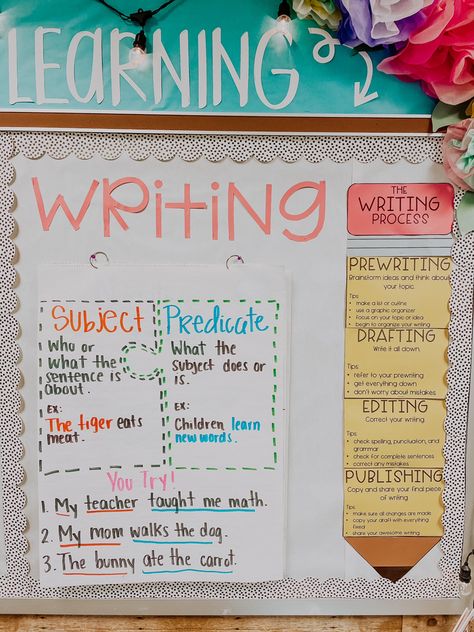 LEARNING
WRiTiNG
Subject
Who or
what the
sentence is
about.
EX:
The tiger eats
meat.
Predicate
What the
subject does or
is.
EX:
Children learn
new words.
You Try!
1. My teacher taught me math.
2. My mom walks the dog.
3. The bunny ate the carrot.
THE
WRITING
PROCESS
PREWRITING
Brainstorm ideas and think about
your topic
Tips:
• make a list or outline
• use a graphic organizer
• Focus on your topic or idea
• begin to organize your writing
DRAFTING
Write it all down.
Tips:
• refer to your prewriting
• get everything down
• don't worry about mistakes
EDITING
Correct your writing
Tips:
• check spelling, punctuation, and
grammar
• check for complete sentences
• correct any mistakes
PUBLISHING
Copy and share your final piece
of writing
Tips:
• make sure all changes are made
• copy your draft with everything
fixed
• share your awesome writing